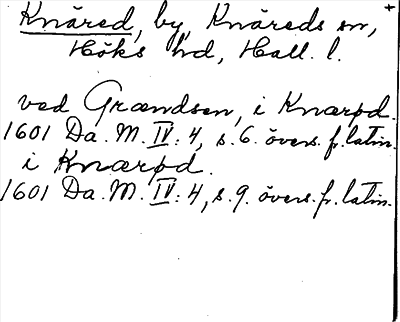 Knäred, by, Knäreds sn,
Höks hd, Hall. l.
ved Grændsen, i Knærød.
1601 Da. M. IV: 4, s. 6. övers. fr. latin.
i Knærød.
1601 Da. M. IV: 4, s. 9. övers. fr. latin.